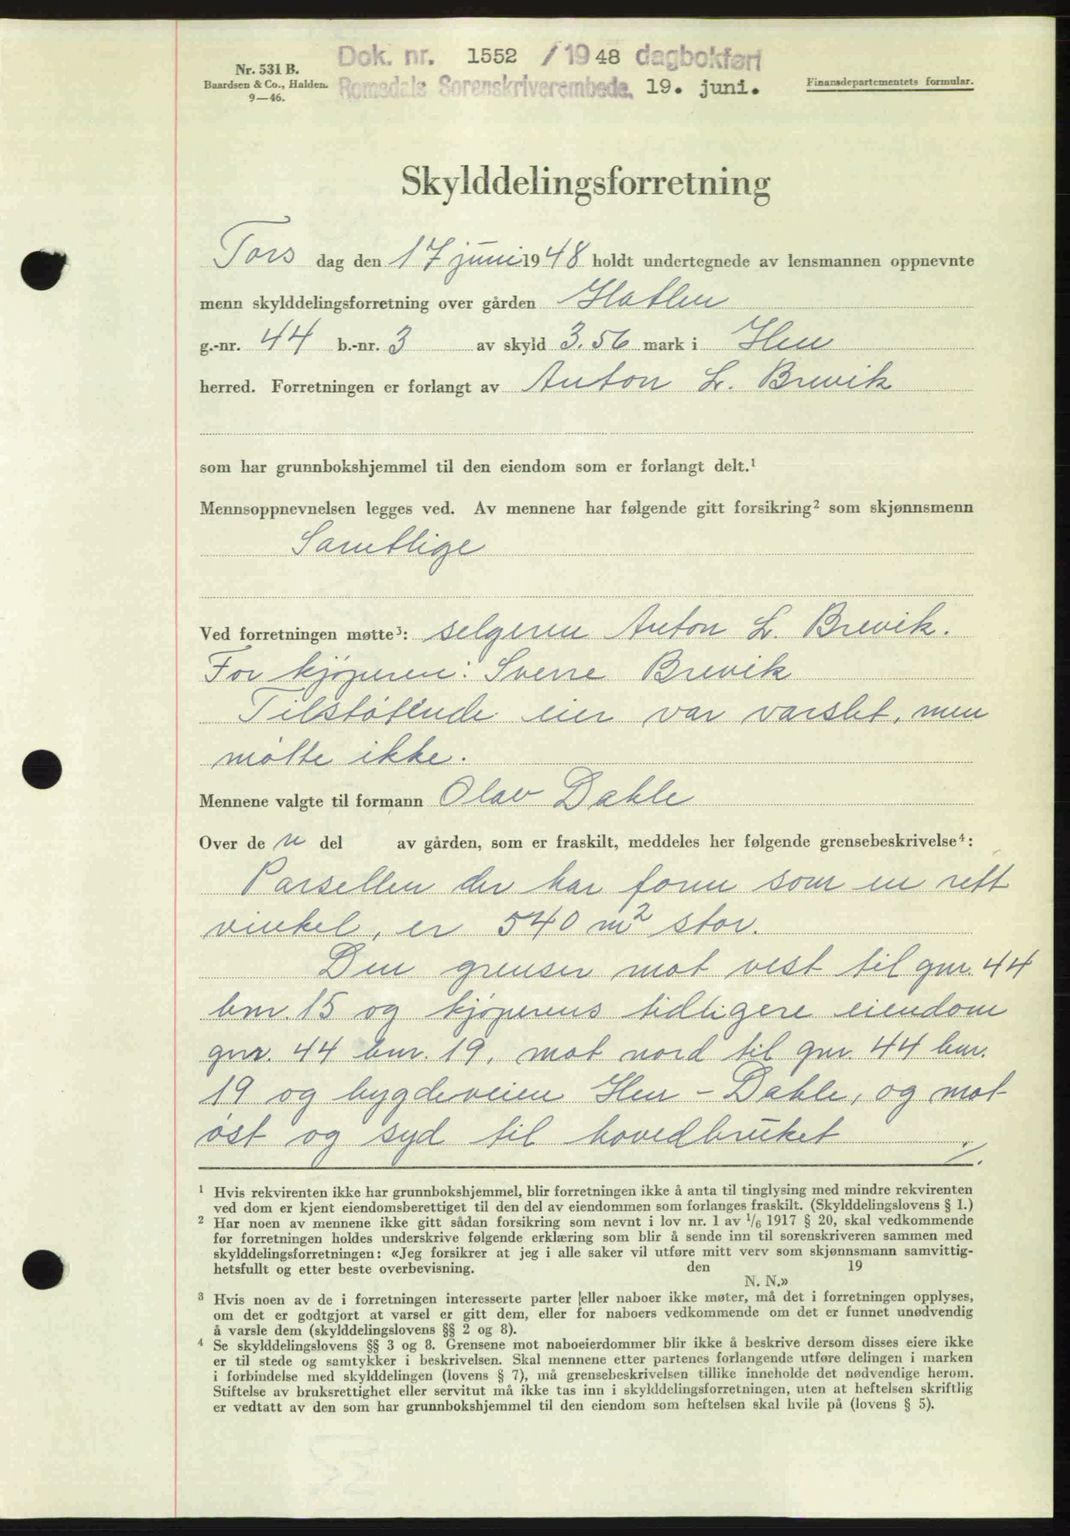 Nr. 531 B.
Baardsen & Co., Halden.
9—46.
Dok. nr. 1552 / 1948 dagbokført
Romsdals Sorenskriverembede, 19. juni.
Finansdepartementets formular.
Skylddelingsforretning
Tors dag den 17 juni 1948 holdt undertegnede av lensmannen oppnevnte
menn skylddelingsforretning over gården Hatlen
g.-nr. 44 b.-nr. 3 av skyld 3.56 mark i Hen
herred. Forretningen er forlangt av Anton L. Brevik
som har grunnbokshjemmel til den eiendom som er forlangt delt.¹
Mennsoppnevnelsen legges ved. Av mennene har følgende gitt forsikring² som skjønnsmenn
Samtlige
Ved forretningen møtte³: selgeren Anton L. Brevik.
For kjøperen: Sverre Brevik
Tilstøtende eier var varslet, men
møtte ikke.
Mennene valgte til formann Olav Dahle
Over de n del av gården, som er fraskilt, meddeles her følgende grensebeskrivelse⁴:
Parsellen der har form som en rett
vinkel, er 540 m² stor.
Den grenser mot vest til gnr. 44
bnr. 15 og kjøperens tidligere eiendom
gnr. 44 bnr. 19, mot nord til gnr. 44 bnr.
19 og bygdeveien Hen - Dahle, og mot
øst og syd til hovedbruket ./.
¹ Hvis rekvirenten ikke har grunnbokshjemmel, blir forretningen ikke å anta til tinglysing med mindre rekvirenten
ved dom er kjent eiendomsberettiget til den del av eiendommen som forlanges fraskilt. (Skylddelingslovens § 1.)
² Har noen av mennene ikke gitt sådan forsikring som nevnt i lov nr. 1 av 1/6 1917 § 20, skal vedkommende
før forretningen holdes underskrive følgende erklæring som blir å sende inn til sorenskriveren sammen med
skylddelingsforretningen: «Jeg forsikrer at jeg i alle saker vil utføre mitt verv som skjønnsmann samvittig-
hetsfullt og etter beste overbevisning. den 19
N. N.»
³ Hvis noen av de i forretningen interesserte parter eller naboer ikke møter, må det i forretningen opplyses,
om det er godtgjort at varsel er gitt dem, eller for naboers vedkommende om det er funnet unødvendig
å varsle dem (skylddelingslovens §§ 2 og 8).
⁴ Se skylddelingslovens §§ 3 og 8. Grensene mot naboeierdommer blir ikke å beskrive dersom disses eiere ikke
er til stede og samtykker i beskrivelsen. Skal mennene etter partenes forlangende utføre delingen i marken
i forbindelse med skylddelingen (lovens § 7), må grensebeskrivelsen tillike inneholde det nødvendige herom.
Stiftelse av bruksrettighet eller servitut må ikke tas inn i skylddelingsforretningen, uten at heftelsen skriftlig
er vedtatt av den som har grunnbokshjemmel til den eiendom som heftelsen skal hvile på (lovens § 5).